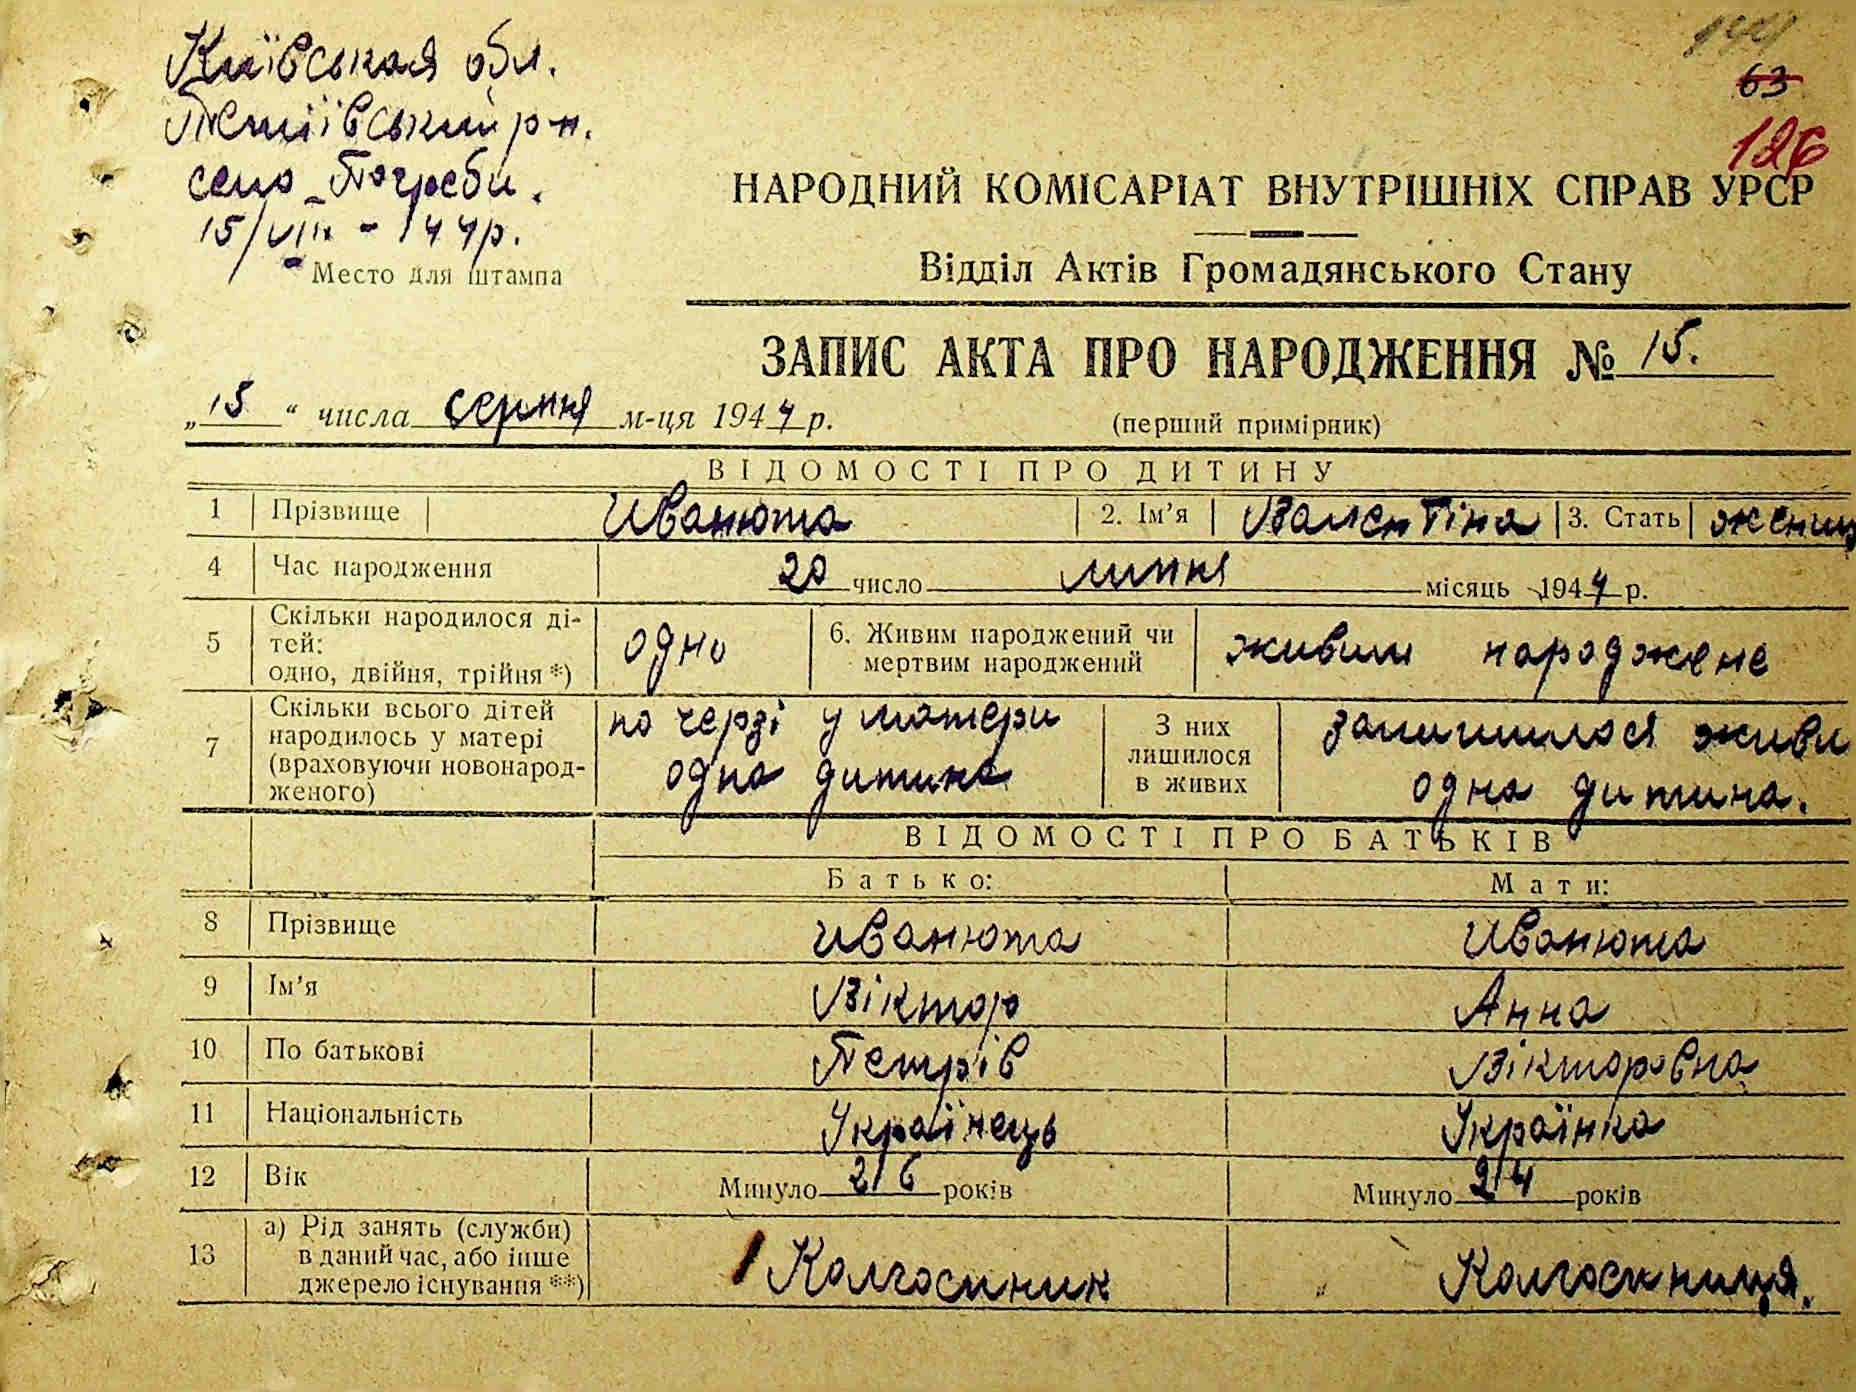 Київськая обл.
Тетіївський р-н.
село Погреби.
15/VIII - 44р.
Место для штампа
63
126
НАРОДНИЙ КОМІСАРІАТ ВНУТРІШНІХ СПРАВ УРСР
Відділ Актів Громадянського Стану
ЗАПИС АКТА ПРО НАРОДЖЕННЯ № 15.
„15“ числа серпня м-ця 1944 р.
(перший примірник)
ВІДОМОСТІ ПРО ДИТИНУ
1 Прізвище Иванюта 2. Ім’я Валентіна 3. Стать женщ
4 Час народження 20 число липня місяць 1944 р.
5 Скільки народилося ді-
тей:
одно, двійня, трійня *)
одно
6. Живим народжений чи
мертвим народжений
живим народжене
7 Скільки всього дітей
народилось у матері
(враховуючи новонарод-
женого)
по черзі у матери
одна дитина
З них
лишилося
в живих
залишилося живи
одна дитина.
ВІДОМОСТІ ПРО БАТЬКІВ
Батько: Мати:
8 Прізвище Иванюта Иванюта
9 Ім’я Віктор Анна
10 По батькові Петрів Вікторовна
11 Національність Українець Українка
12 Вік Минуло 26 років Минуло 24 років
13 а) Рід занять (служби)
в даний час, або інше
джерело існування **)
Колгоспник Колгоспниця.